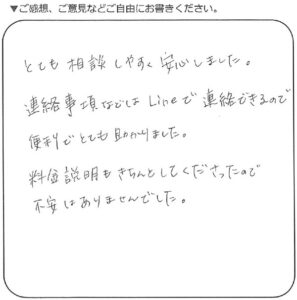 ▼ご感想、ご意見などご自由にお書きください。
とても相談しやすく安心しました。
連絡事項などは Lineで連絡できるので
便利でとても助かりました。
料金説明もきちんとしてくださったので
不安はありませんでした。